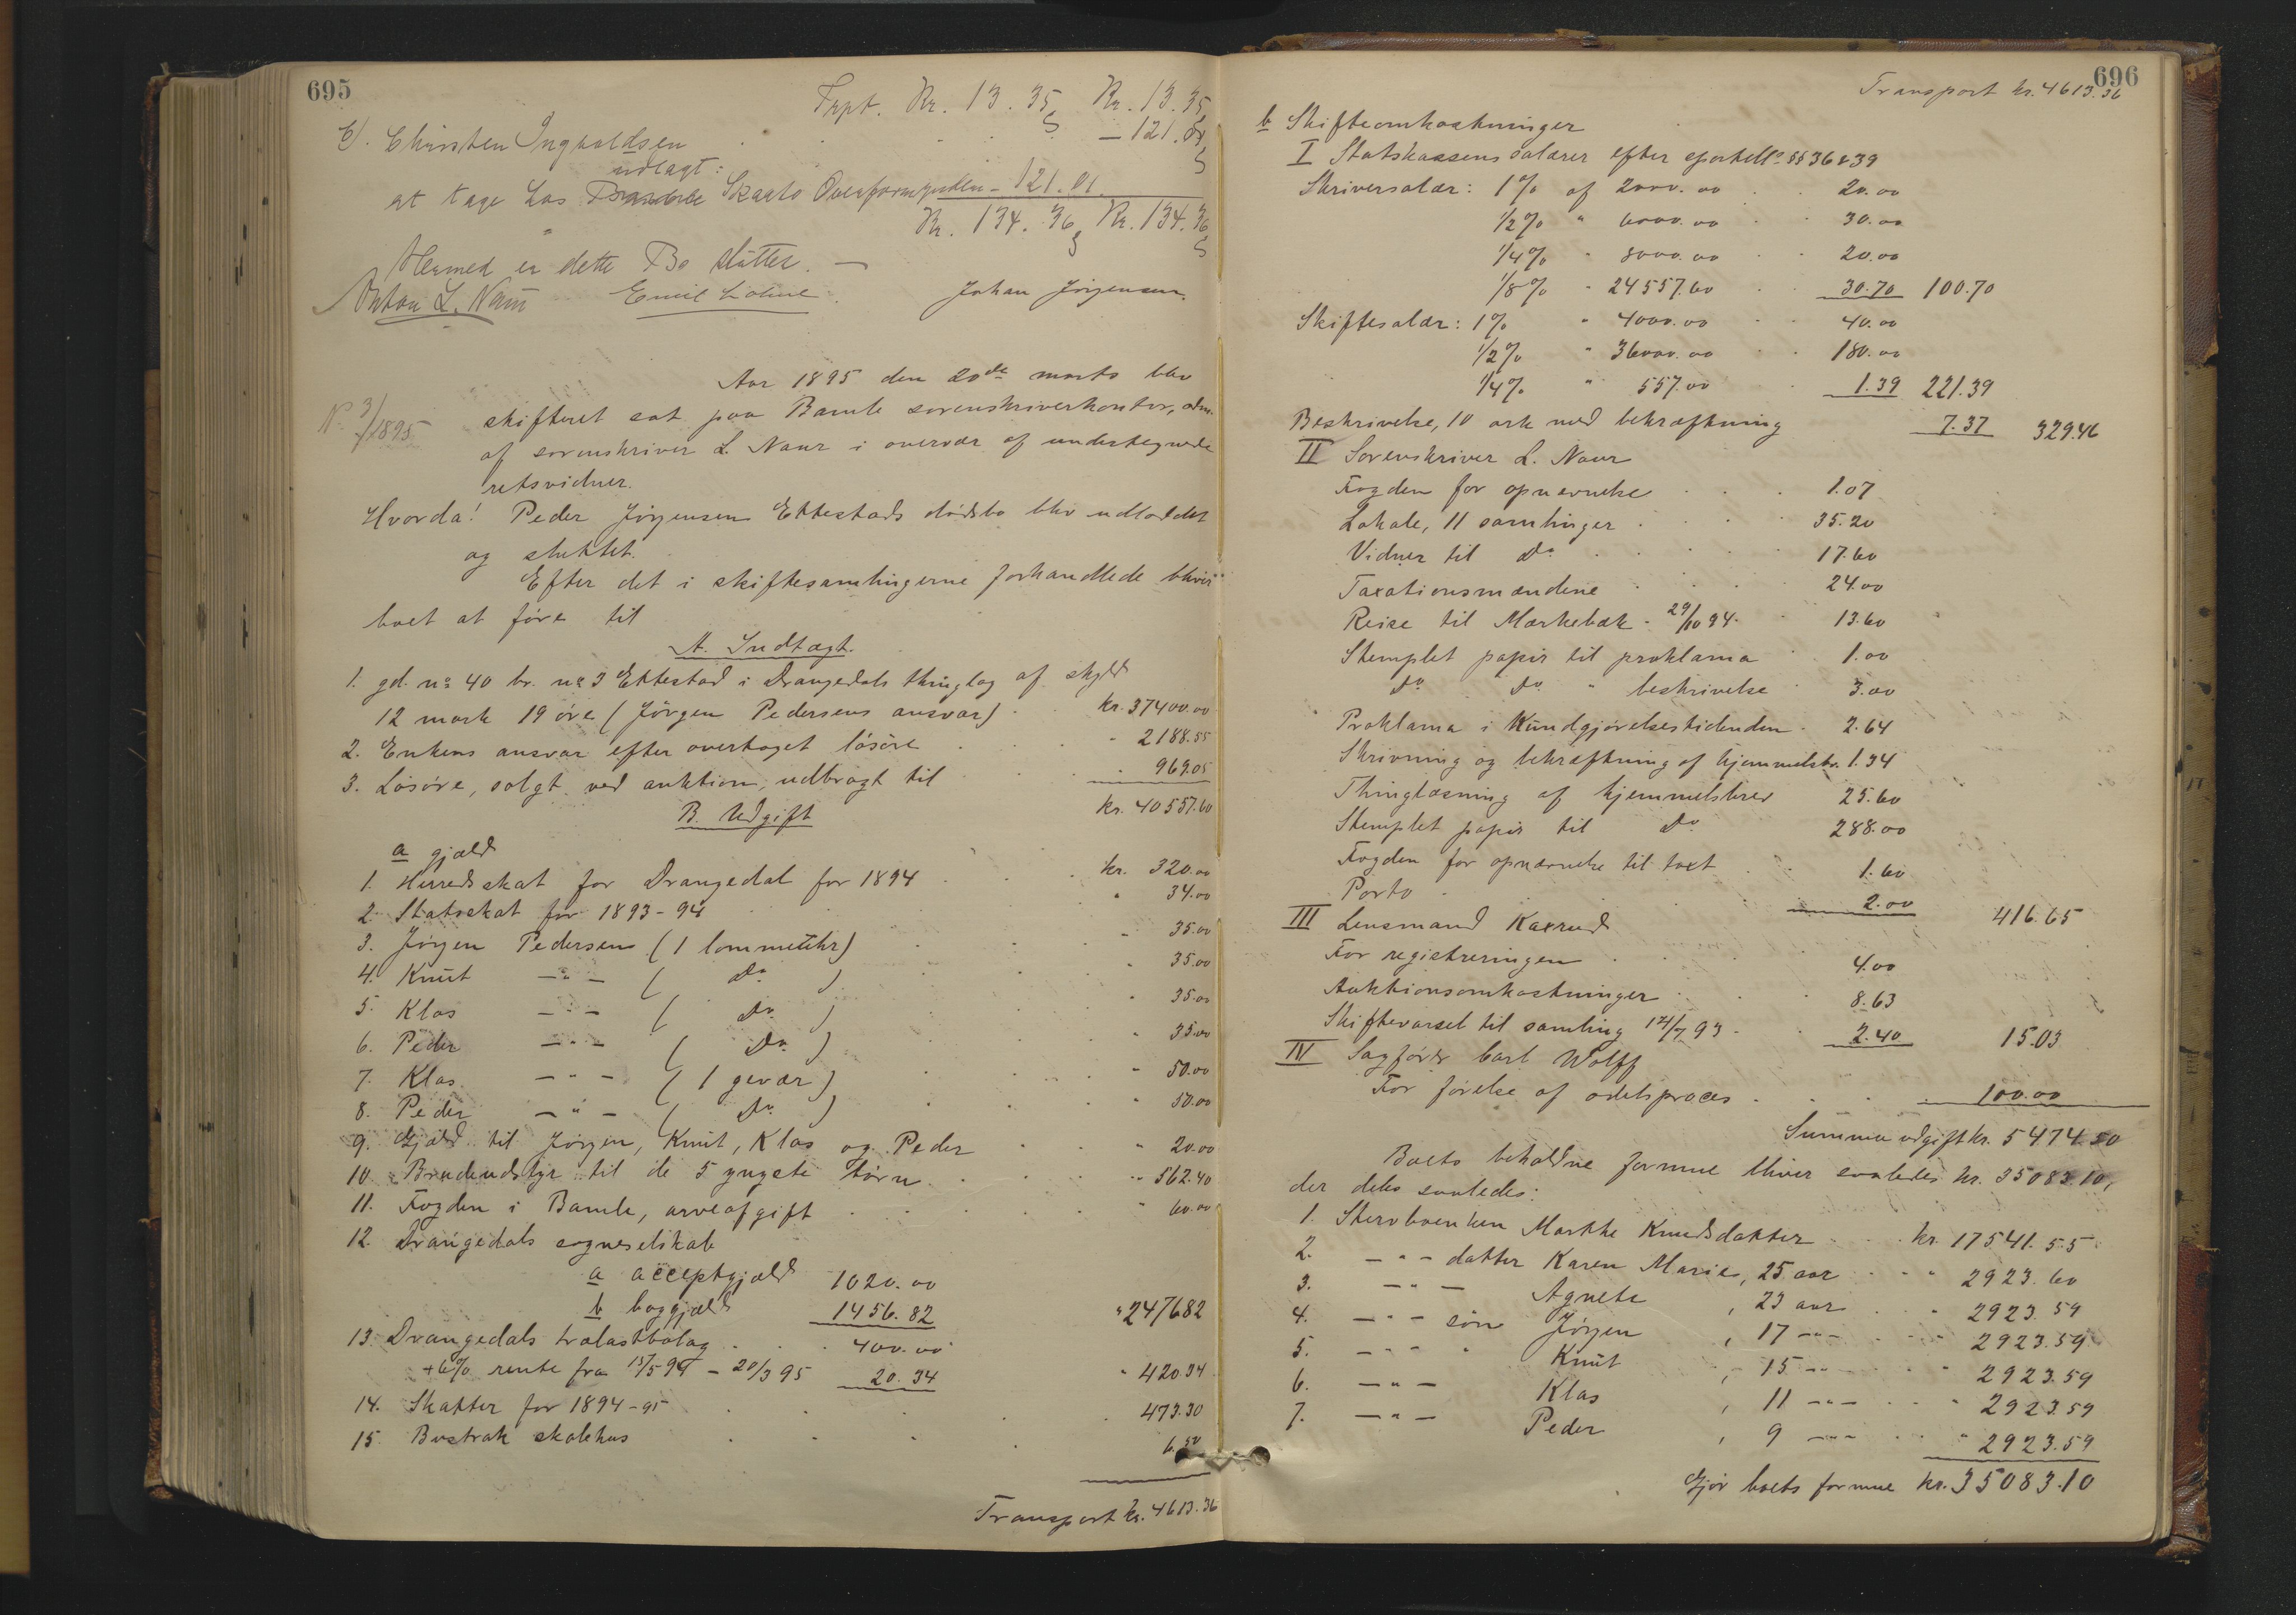 695
Trpt. Kr. 13.35 Kr. 13.35
Christen Ingvaldsen — 121.01
udlagt:
at tage hos Skaato Overformynderi - 121.01.
Kr. 134.36 Kr. 134.36
Hermed er dette Bo sluttet. —
L. Naur Emil Johan Jörgensen.
No 3/1895
Aar 1895 den 20de marts blev
skifteret sat paa Bamle sorenskriverkontor, adm.
af sorenskriver L. Naur i overvær af undertegnede
retsvidner.
Hvorda! Peder Jörgensen Ettestads dödsbo blev udloddet
og sluttet.
Efter det i skiftesamlingerne forhandlede bliver
boet at före til
A. Indtægt.
1. gd. no 40 br. no 3 Ettestad i Drangedals thinglag af skyld
12 mark 19 öre (Jörgen Pedersens ansvar) kr. 37400.00
2. Enkens ansvar efter overtaget lösöre " 2188.55
3. Lösöre, solgt ved auktion, udbragt til " 969.05
kr. 40557.60
B. Udgift
a gjæld
1. Herredsskat for Drangedal for 1894 kr. 320.00
2. Statsskat for 1893-94 " 34.00
3. Jörgen Pedersen (1 lommeuhr) " 35.00
4. Knut —"— ( Do ) " 35.00
5. Klas —"— ( Do ) " 35.00
6. Peder —"— ( Do ) " 35.00
7. Klas —"— (1 gevær) " 50.00
8. Peder —"— ( Do ) " 50.00
9. Gjæld til Jörgen, Knut, Klas og Peder " 20.00
10. Brudeudstyr til de 5 yngste börn " 562.40
11. Fogden i Bamle, arveafgift " 60.00
12. Drangedals sogneselskab
a acceptgjæld 1020.00
b boggjæld 1456.82 " 2476.82
13. Drangedals trælastbolag 400.00
+ 6% rente fra 15/5 94 - 20/3 95 20.34 " 420.34
14. Skatter for 1894-95 473.30
15. Bostrak skolehus 6.50
Transport kr. 4613.36
696
Transport kr. 4613.36
b Skifteomkostninger
I Statskassens salærer efter sportell. §§ 36 & 39
Skriversalær: 1% af 2000.00 20.00
1/2% " 6000.00 30.00
1/4% " 8000.00 20.00
1/8% " 24557.60 30.70 100.70
Skiftesalær: 1% " 4000.00 40.00
1/2% " 36000.00 180.00
1/4% " 557.00 1.39 221.39
Beskrivelse, 10 ark med bekræftning 7.37 329.46
II Sorenskriver L. Naur
Fogden for opnævnelse 1.07
Lokale, 11 samlinger 35.20
Vidner til Do 17.60
Taxationsmændene 24.00
Reise til Markebæk 29/10 94. 13.60
Stemplet papir til proklama 1.00
Do Do " beskrivelse 3.00
Proklama i Kundgjörelsestidenden 2.64
Skrivning og bekræftning af hjemmelsbr. 1.34
Thinglæsning af hjemmelsbrev 25.60
Stemplet papir til Do 288.00
Fogden for opnævnelse til taxt 1.60
Porto 2.00 416.65
III Lensmand Kaasrud
For registreringen 4.00
Auktionsomkostninger 8.63
Skiftevarsel til samling 14/7 93 2.40 15.03
IV Sagförer Carl Wolff
For förelse af odelsproces 100.00
Summa udgift kr. 5474.50
Boets beholdne formue bliver saaledes kr. 35083.10,
der deles saaledes:
1. Stervboenken Marthe Knudsdatter kr. 17541.55
2. —"— datter Karen Marie, 25 aar " 2923.60
3. —"— Agnete, 23 aar " 2923.59
4. —"— sön Jörgen, 17 —"— " 2923.59
5. —"— " Knut, 15 —"— " 2923.59
6. —"— Klas, 11 —"— " 2923.59
7. —"— Peder, 9 —"— " 2923.59
Gjör boets formue kr. 35083.10